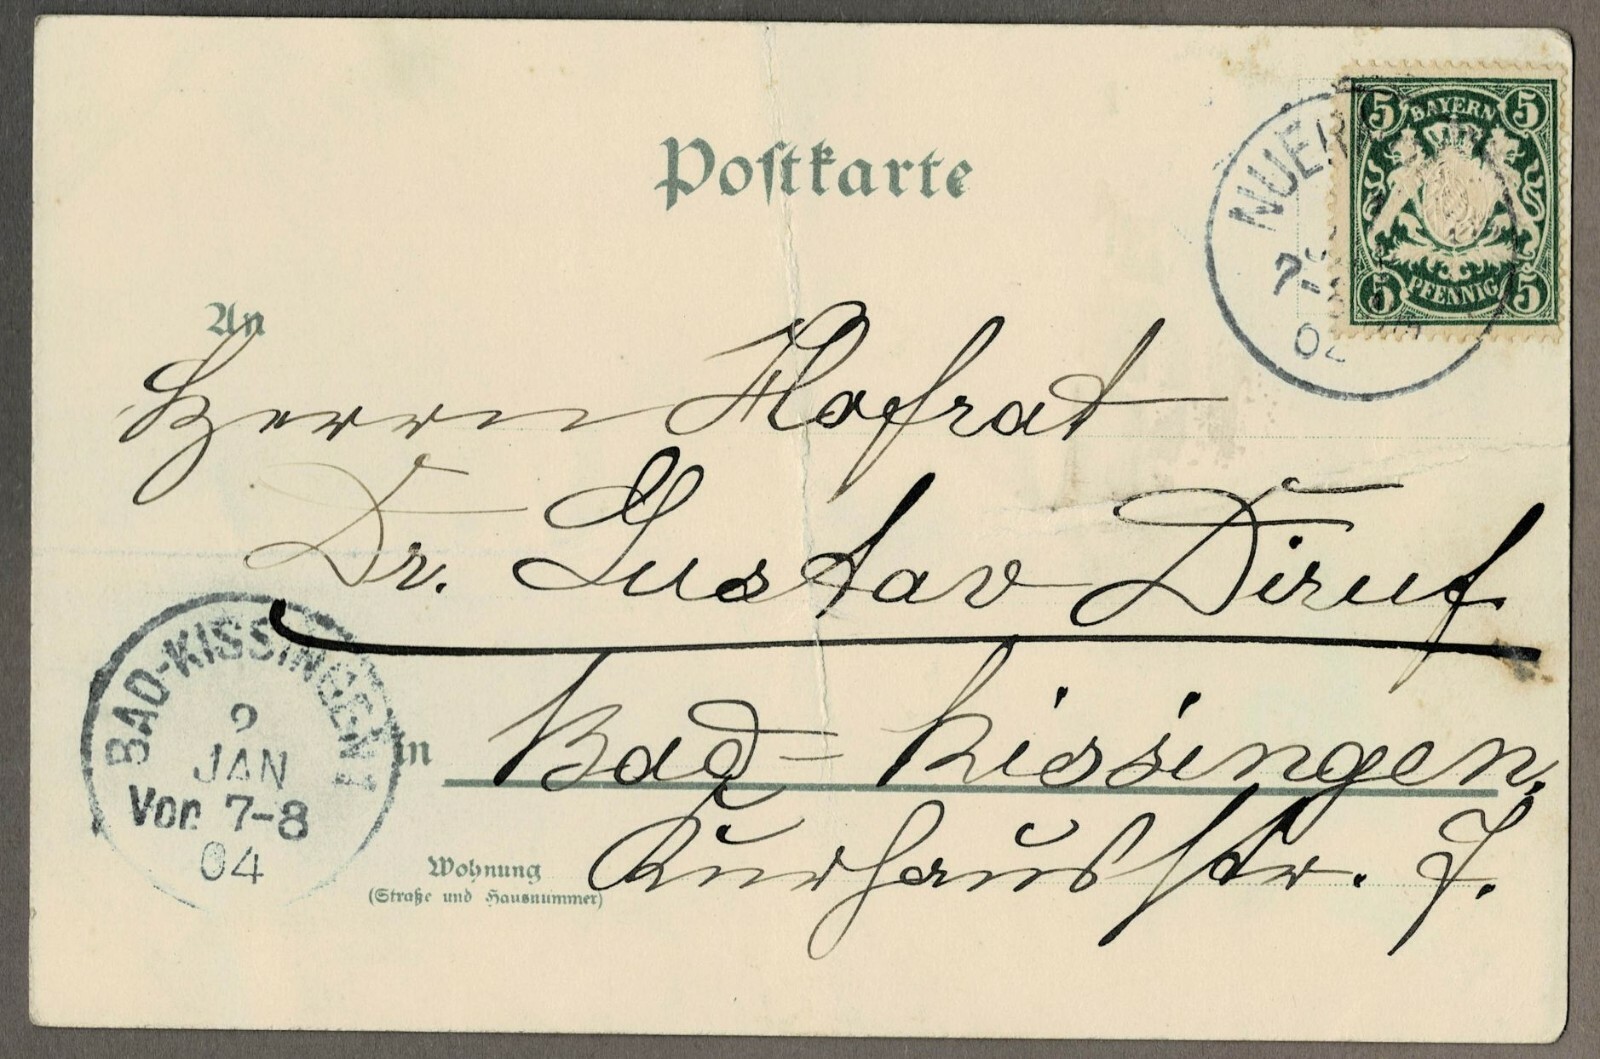 Postkarte
5 BAYERN 5
5 PFENNIG 5
04
An
Herrn Hofrat
Dr. Gustav Diruf
Bad-Kissingen,
in
Kurhausstr. 7.
Wohnung
(Straße und Hausnummer)
BAD-KISSINGEN 1
9
JAN
Vor 7-8
04